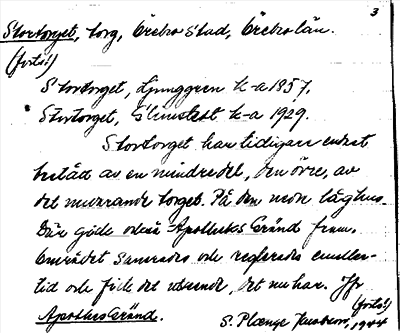 3
Stortorget, torg, Örebro stad, Örebro län.
(forts.)
Stortorget, Ljunggren k-a 1857.
Stortorget, k-a 1929.
Stortorget har tidigare endast
bestått av en mindre del, den övre, av
det nuvarande torget. På den nedre låg hus.
Där gick också Apotheks Gränd fram.
Området sanerades och reglerades emeller-
tid och fick det utseende, det nu har. Jfr
Apotheks Gränd. (forts.)
S. Plænge Jacobson, 1944